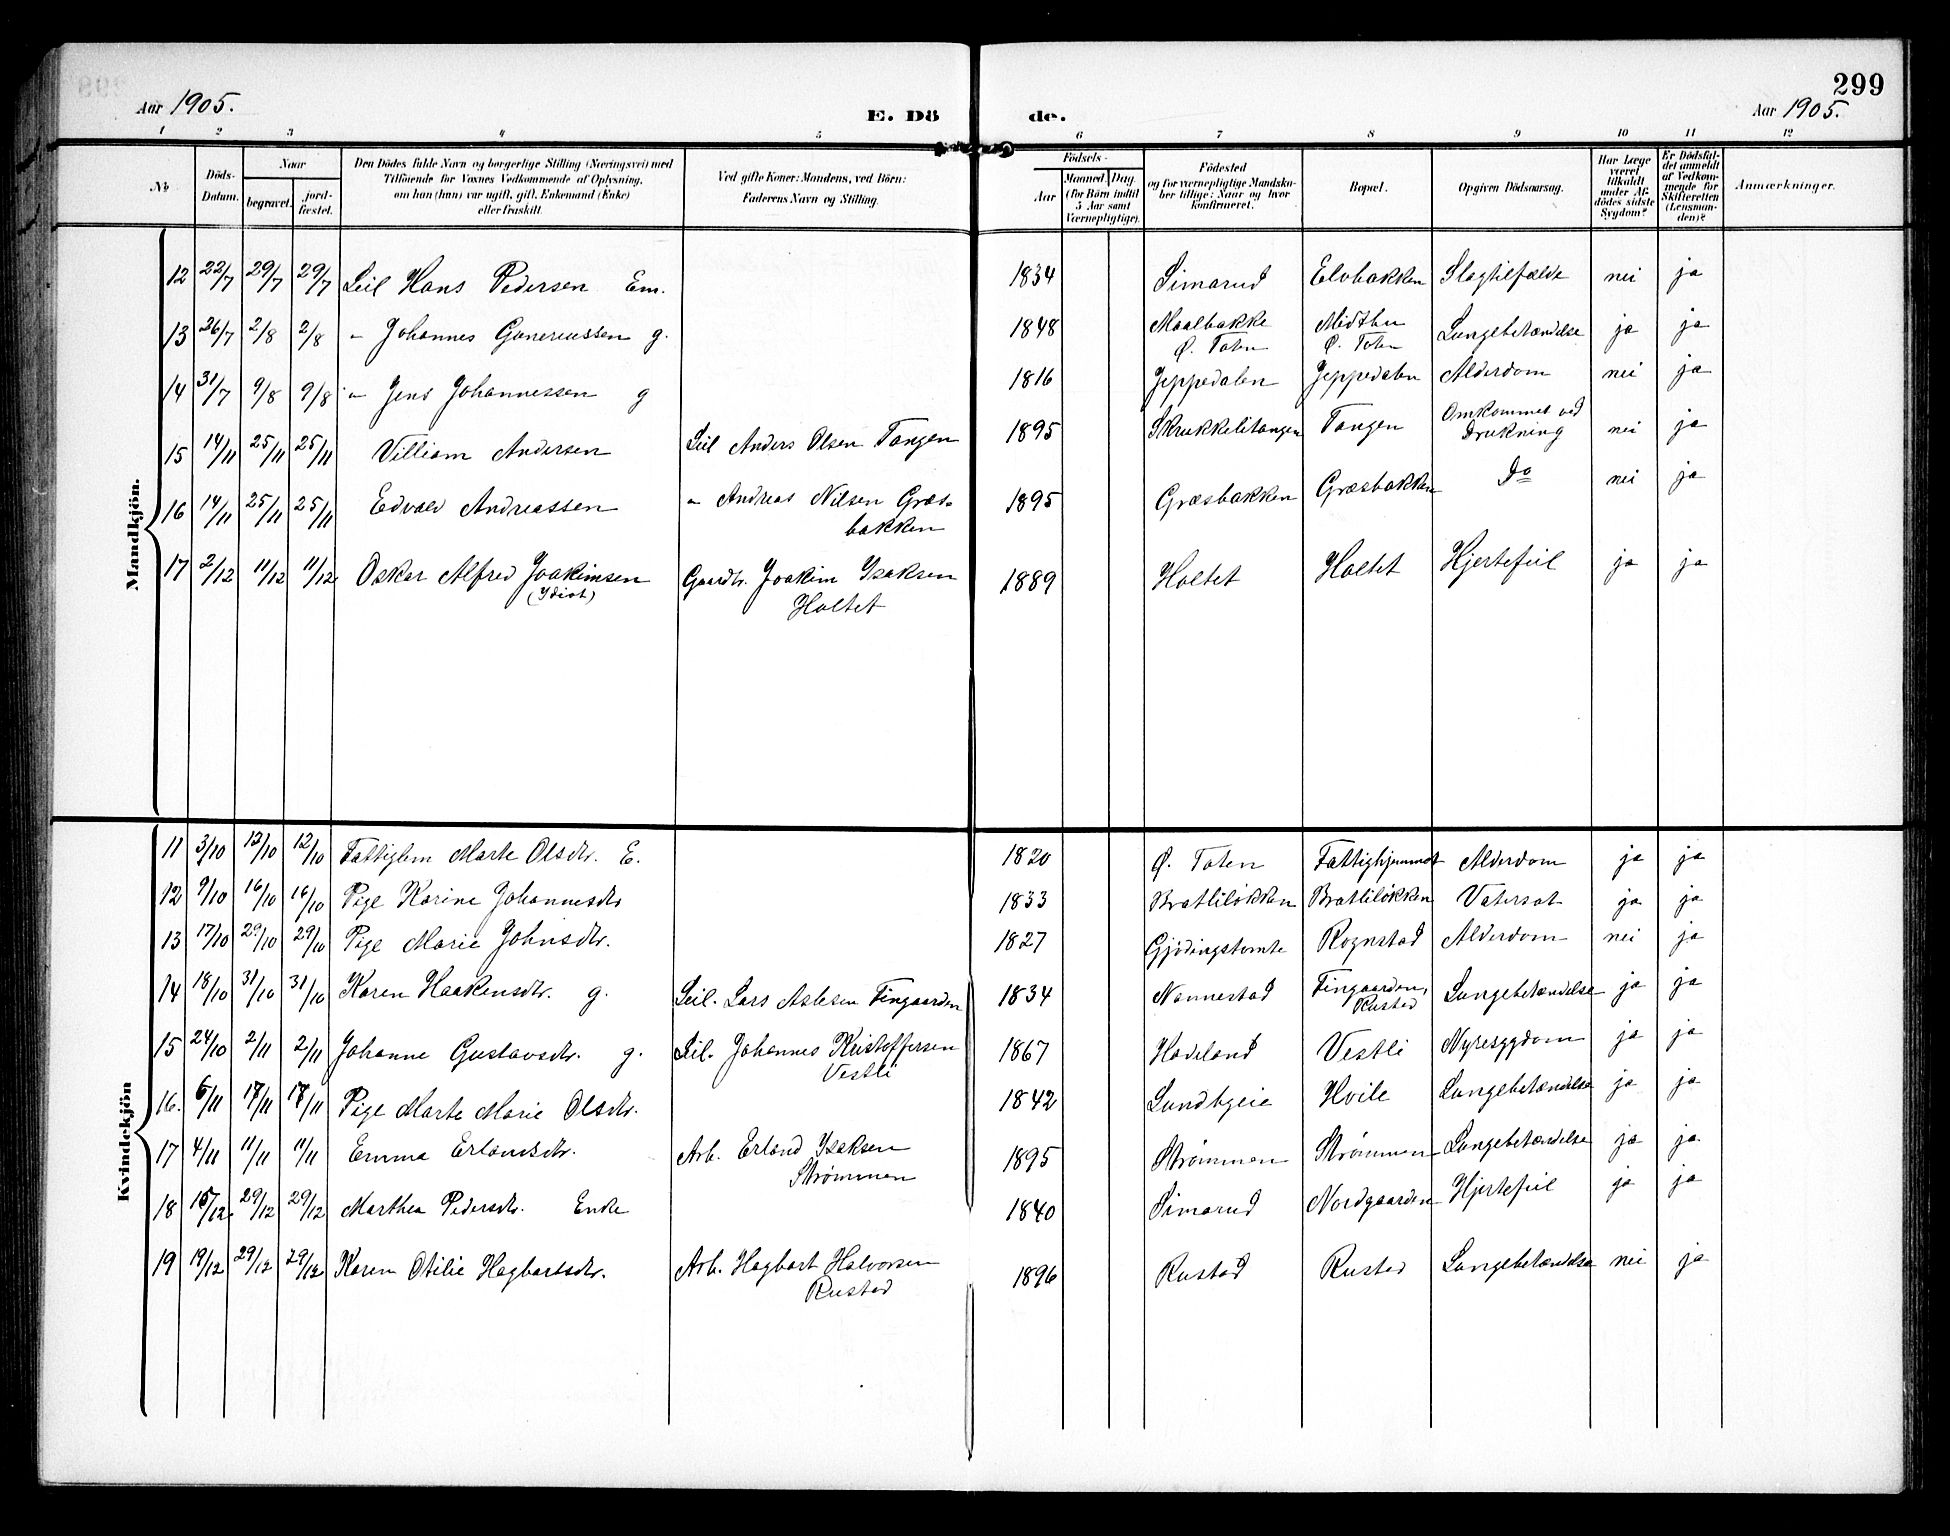 299
Aar 1905.
E. Dö de.
Aar 1905.
1 2 3 4 5 6 7 8 9 10 11 12
No
Döds-Datum.
Naar
begravet.
jord-fæstet.
Den Dödes fulde Navn og borgerlige Stilling (Næringsvei) med
Tilföiende for Voxnes Vedkommende af Oplysning,
om han (hun) var ugift, gift, Enkemand (Enke)
eller fraskilt.
Ved gifte Koner: Mandens, ved Börn:
Faderens Navn og Stilling.
Födsels-
Aar
Maaned. Dag.
(for Börn indtil
5 Aar samt
Værnepligtige).
Födested
og for værnepligtige Mandska-
ber tillige: Naar og hvor
konfirmeret.
Bopæl.
Opgiven Dödsaarsag.
Har Læge
været
tilkaldt
under Af-
dödes sidste
Sygdom?
Er Dödsfal-
det anmeldt
af Vedkom-
mende for
Skifteretten
(Lensman-
den)?
Anmærkninger.
Mandkjön.
12 22/7 29/7 29/7 Leil Hans Pedersen Em. 1834 Simarud Elvbakken Slagtilfælde nei ja
13 26/7 2/8 2/8 " Johannes Gunerussen g. 1848 Maalbakke Ø. Toten Midtbu Ø. Toten Lungebetændelse ja ja
14 31/7 9/8 9/8 " Jens Johannessen g 1816 Jeppedalen Jeppedalen Alderdom nei ja
15 14/11 25/11 25/11 Villiam Andersen Leil Anders Olsen Tangen 1895 Skrukkelitangen Tangen Omkommet ved Drukning nei ja
16 14/11 25/11 25/11 Edvald Andreassen " Andreas Nilsen Græsbakken 1895 Græsbakken Græsbakken Do nei ja
17 2/12 11/12 11/12 Oskar Alfred Joakimsen (Idiot) Gaardbr. Joakim Isaksen Holtet 1889 Holtet Holtet Hjertefeil ja ja
Kvindekjön
11 3/10 12/10 12/10 Fattiglem Marte Olsdtr. E. 1820 Ø. Toten Fattighjemmet Alderdom ja ja
12 9/10 16/10 16/10 Pige Karine Johannesdtr 1833 Bratliløkken Bratliløkken Vatersot ja ja
13 17/10 29/10 29/10 Pige Marie Johnsdtr. 1827 Gjødingstomte Rognstad Alderdom nei ja
14 18/10 31/10 31/10 Karen Haakensdtr. g. Leil. Lars Aslesen Fingaarden 1834 Nannestad Fingaarden, Rustad Lungebetændelse ja ja
15 24/10 2/11 2/11 Johanne Gustavsdtr. g. Leil. Johannes Kristoffersen Vestli 1867 Hadeland Vestli Nyresygdom ja ja
16. 6/11 17/11 17/11 Pige Marte Marie Olsdtr. 1842 Lundbyeie Hvile Lungebetændelse ja ja
17 4/11 11/11 11/11 Emma Erlandsdtr. Arb. Erland Isaksen Strømmen 1895 Strømmen Strømmen Lungebetændelse ja ja.
18 15/12. 29/12 29/12 Marthea Pedersdtr. Enke 1840 Simarud Nordgaarden Hjertefeil ja ja
19 19/12 29/12 29/12 Karen Otilie Hagbartsdtr. Arb. Hagbart Halvorsen Rustad 1896 Rustad Rustad Lungebetændelse nei ja